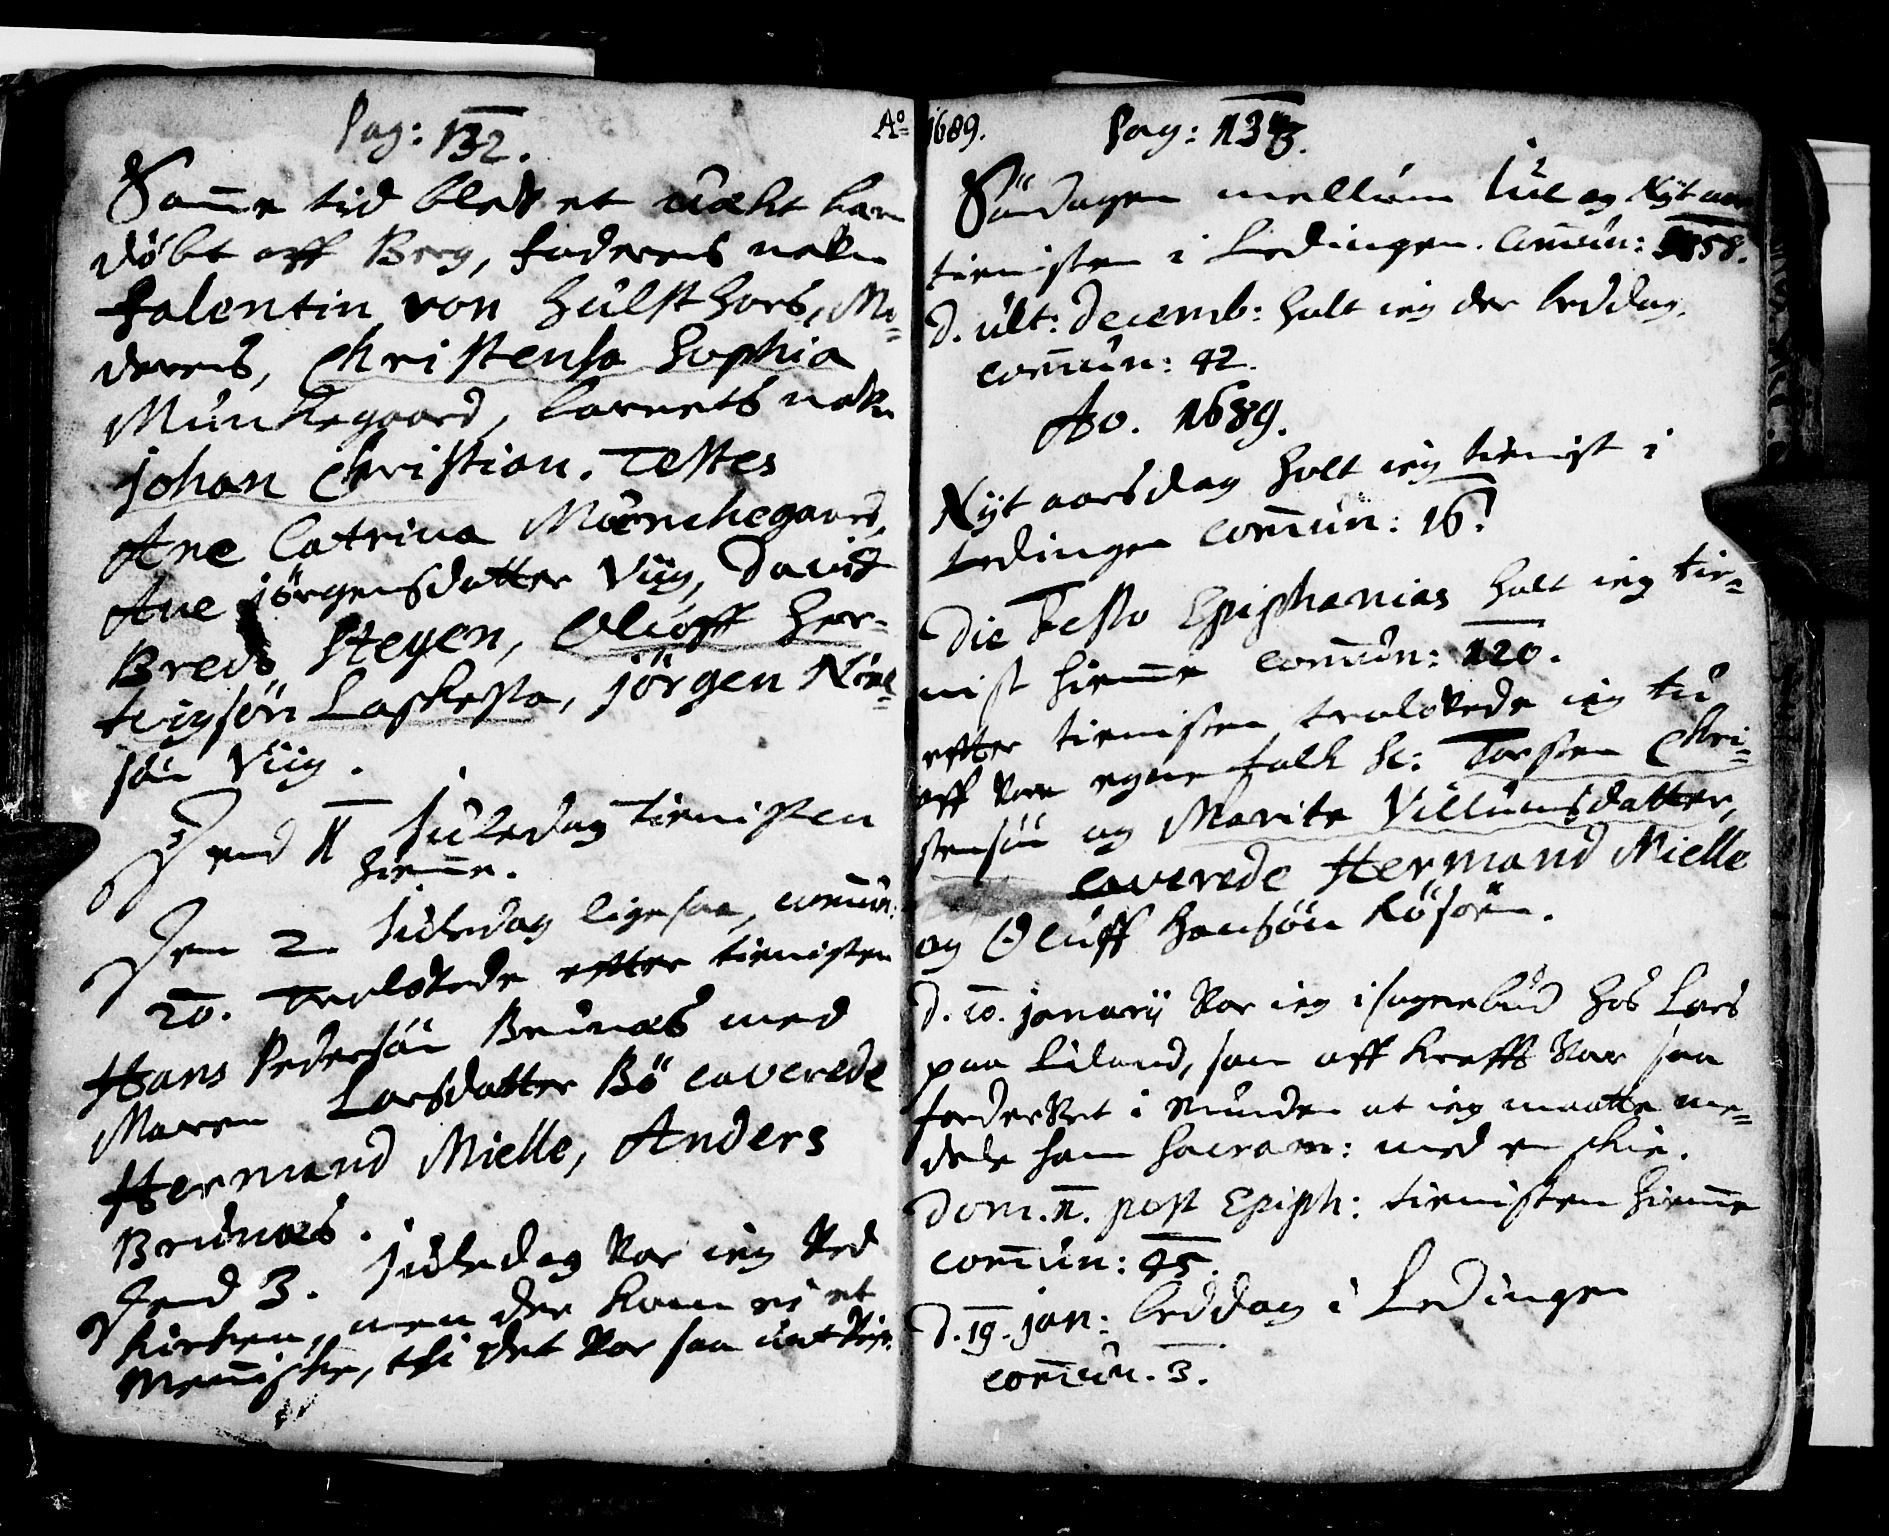 Pag: 132.
Sam̅e tid blev et uækt barn
döbt aff Berg, faderens nafn
falentin von Hulsthors, Mo=
derens, Christensa Sophia
Munkegaard, barnets nafn
Johan Christian. Testes
Ane Catrina Mũnchegaard,
Ane Jörgensdatter Viig, David
Breds Steyen, Oluff Her=
tvigsön Laskesta, Jörgen Niel=
sön Viig.
Jend 1 Juledag tienisten
hiem̅e.
Jen 2. Juledag ligesaa, com̅un:
20. Trolovede effter tienisten
Hans Pedersön Brunæs med
Maren Larsdatter Bö caverede
Hermand Mielle, Anders
Brunæs.
Jend 3. Juledag var ieg ved
Kirken, men der kom ei et
Men̅iske, thi det var saa
Ao 1689.
Pag: 133.
Söndagen mellum Juul og Nytaar
tienisten i Ledingen. Com̅un: 58.
d. ult: decemb: holt ieg der beddag.
com̅un: 42.
Ao. 1689.
Nyt aarsdag holt ieg tienist i
Ledingen Com̅un: 16.
Die Festo Epiphanias holt ieg tie=
nist hiem̅e com̅un: 120.
effter tienisten trolovede ieg tu
aff vore egne folk sc: Torsten Chri=
stensön og Marite Villumsdatter,
caverede Hermand Mielle
og Oluff Hansön Kösöen.
d. 10. Januarij var ieg i sognebud hos Lars
paa Liland, som aff Krefft var saa
fordervet i Munden at ieg maatte me=
dele ham Sacram: med en skie.
Dom. II. post Epiph: tienisten hiem̅e
com̅un: 45.
d. 19. Jan: beddag i Ledingen
com̅un. 3.